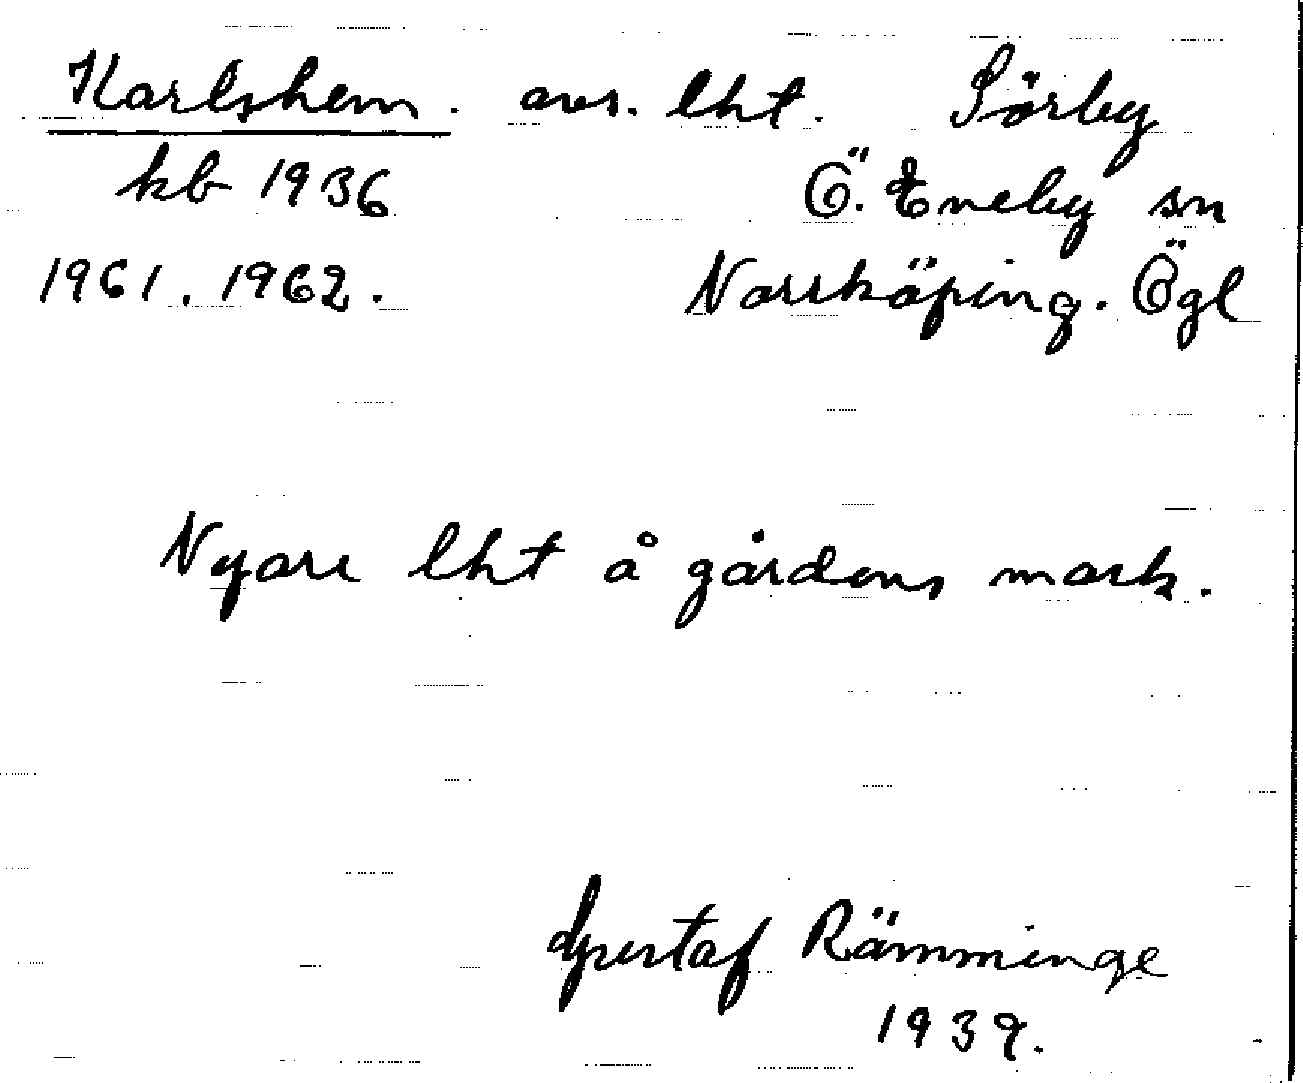 Karlshem. avs. lht. Sörby
kb 1936 Ö. Eneby sn
1961. 1962. Norrköping. Ögl
Nyare lht å gårdens mark.
Gustaf Rämminge
1939.